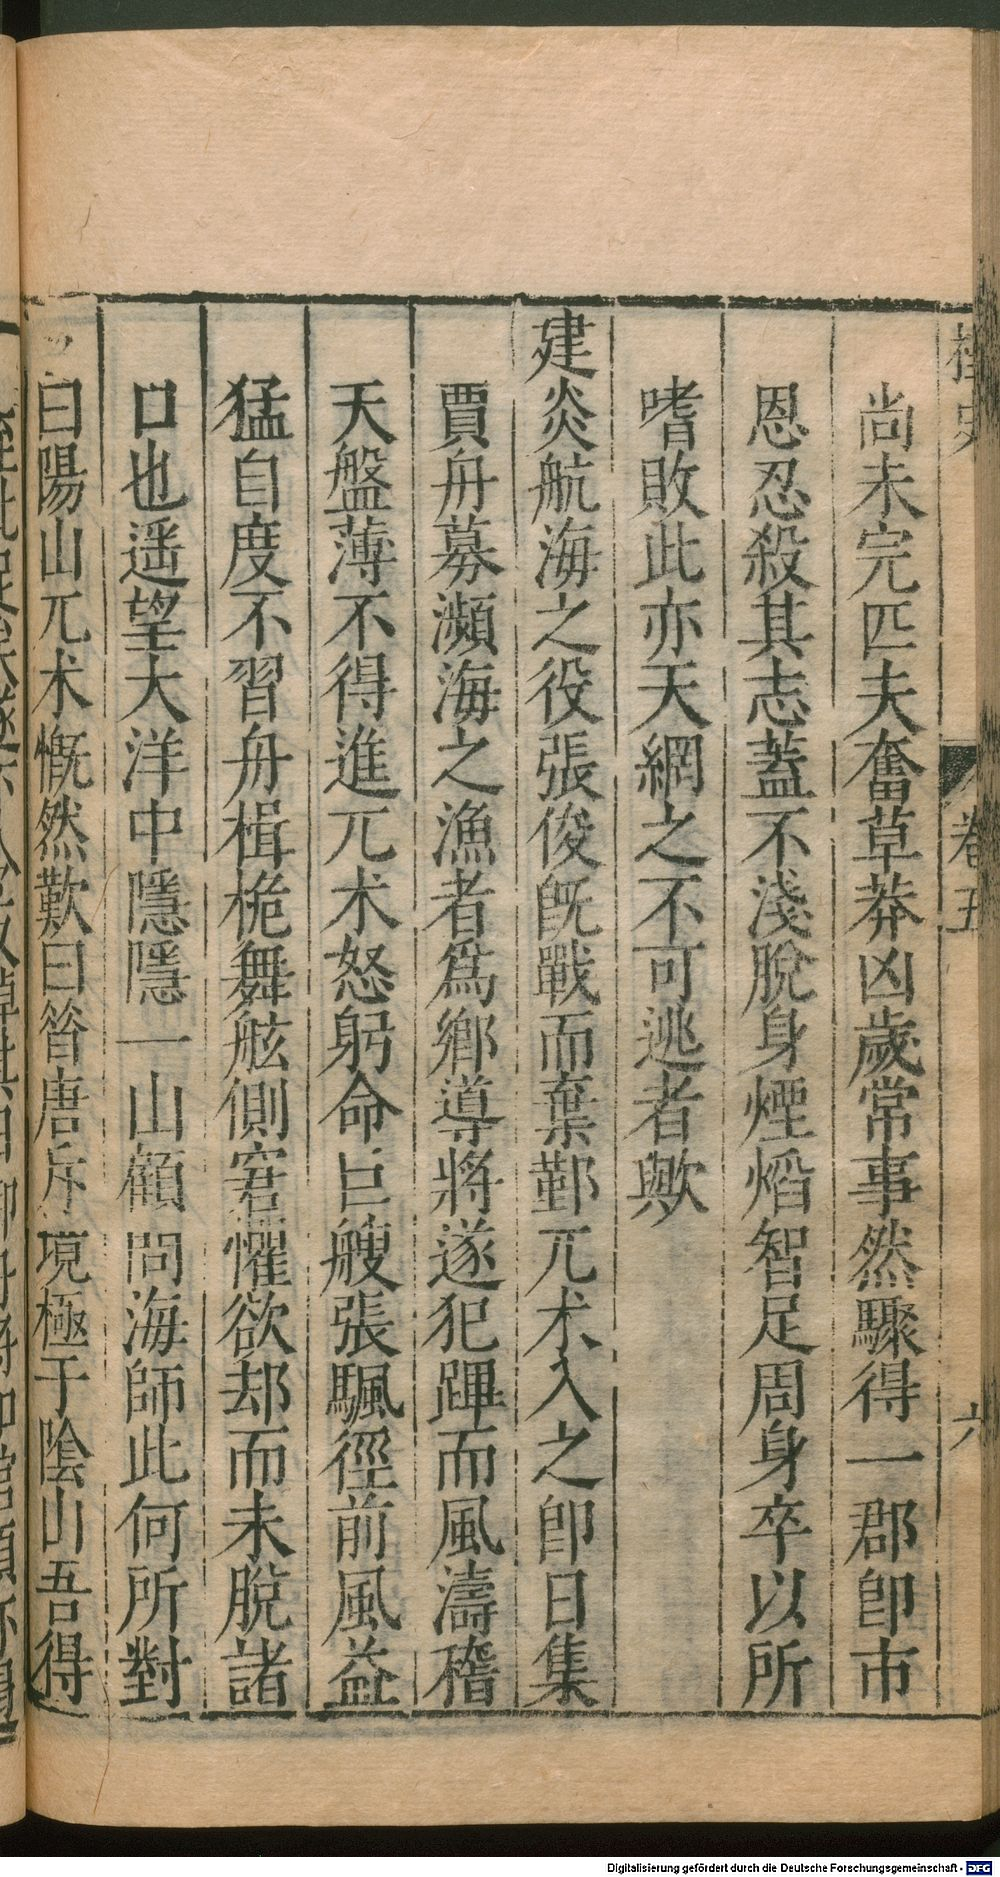 桯史
卷五
六
尚未完匹夫奮草莽凶歲常事然驟得一郡卽市
恩忍殺其志蓋不淺脫身煙熖智足周身卒以所
嗜敗此亦天網之不可逃者歟
建炎航海之役張俊旣戰而棄鄞兀朮入之卽日集
賈舟募瀕海之漁者爲鄉導將遂犯蹕而風濤稽
天盤薄不得進兀朮怒躬命巨艘張颿徑前風益
猛自度不習舟楫桅舞舷側窘懼欲却而未脫諸
口也遥望大洋中隱隱一山顧問海師此何所對
曰陽山兀朮慨然歎曰昝唐斥境極于隂山吾得
Digitalisierung gefördert durch die Deutsche Forschungsgemeinschaft - DFG